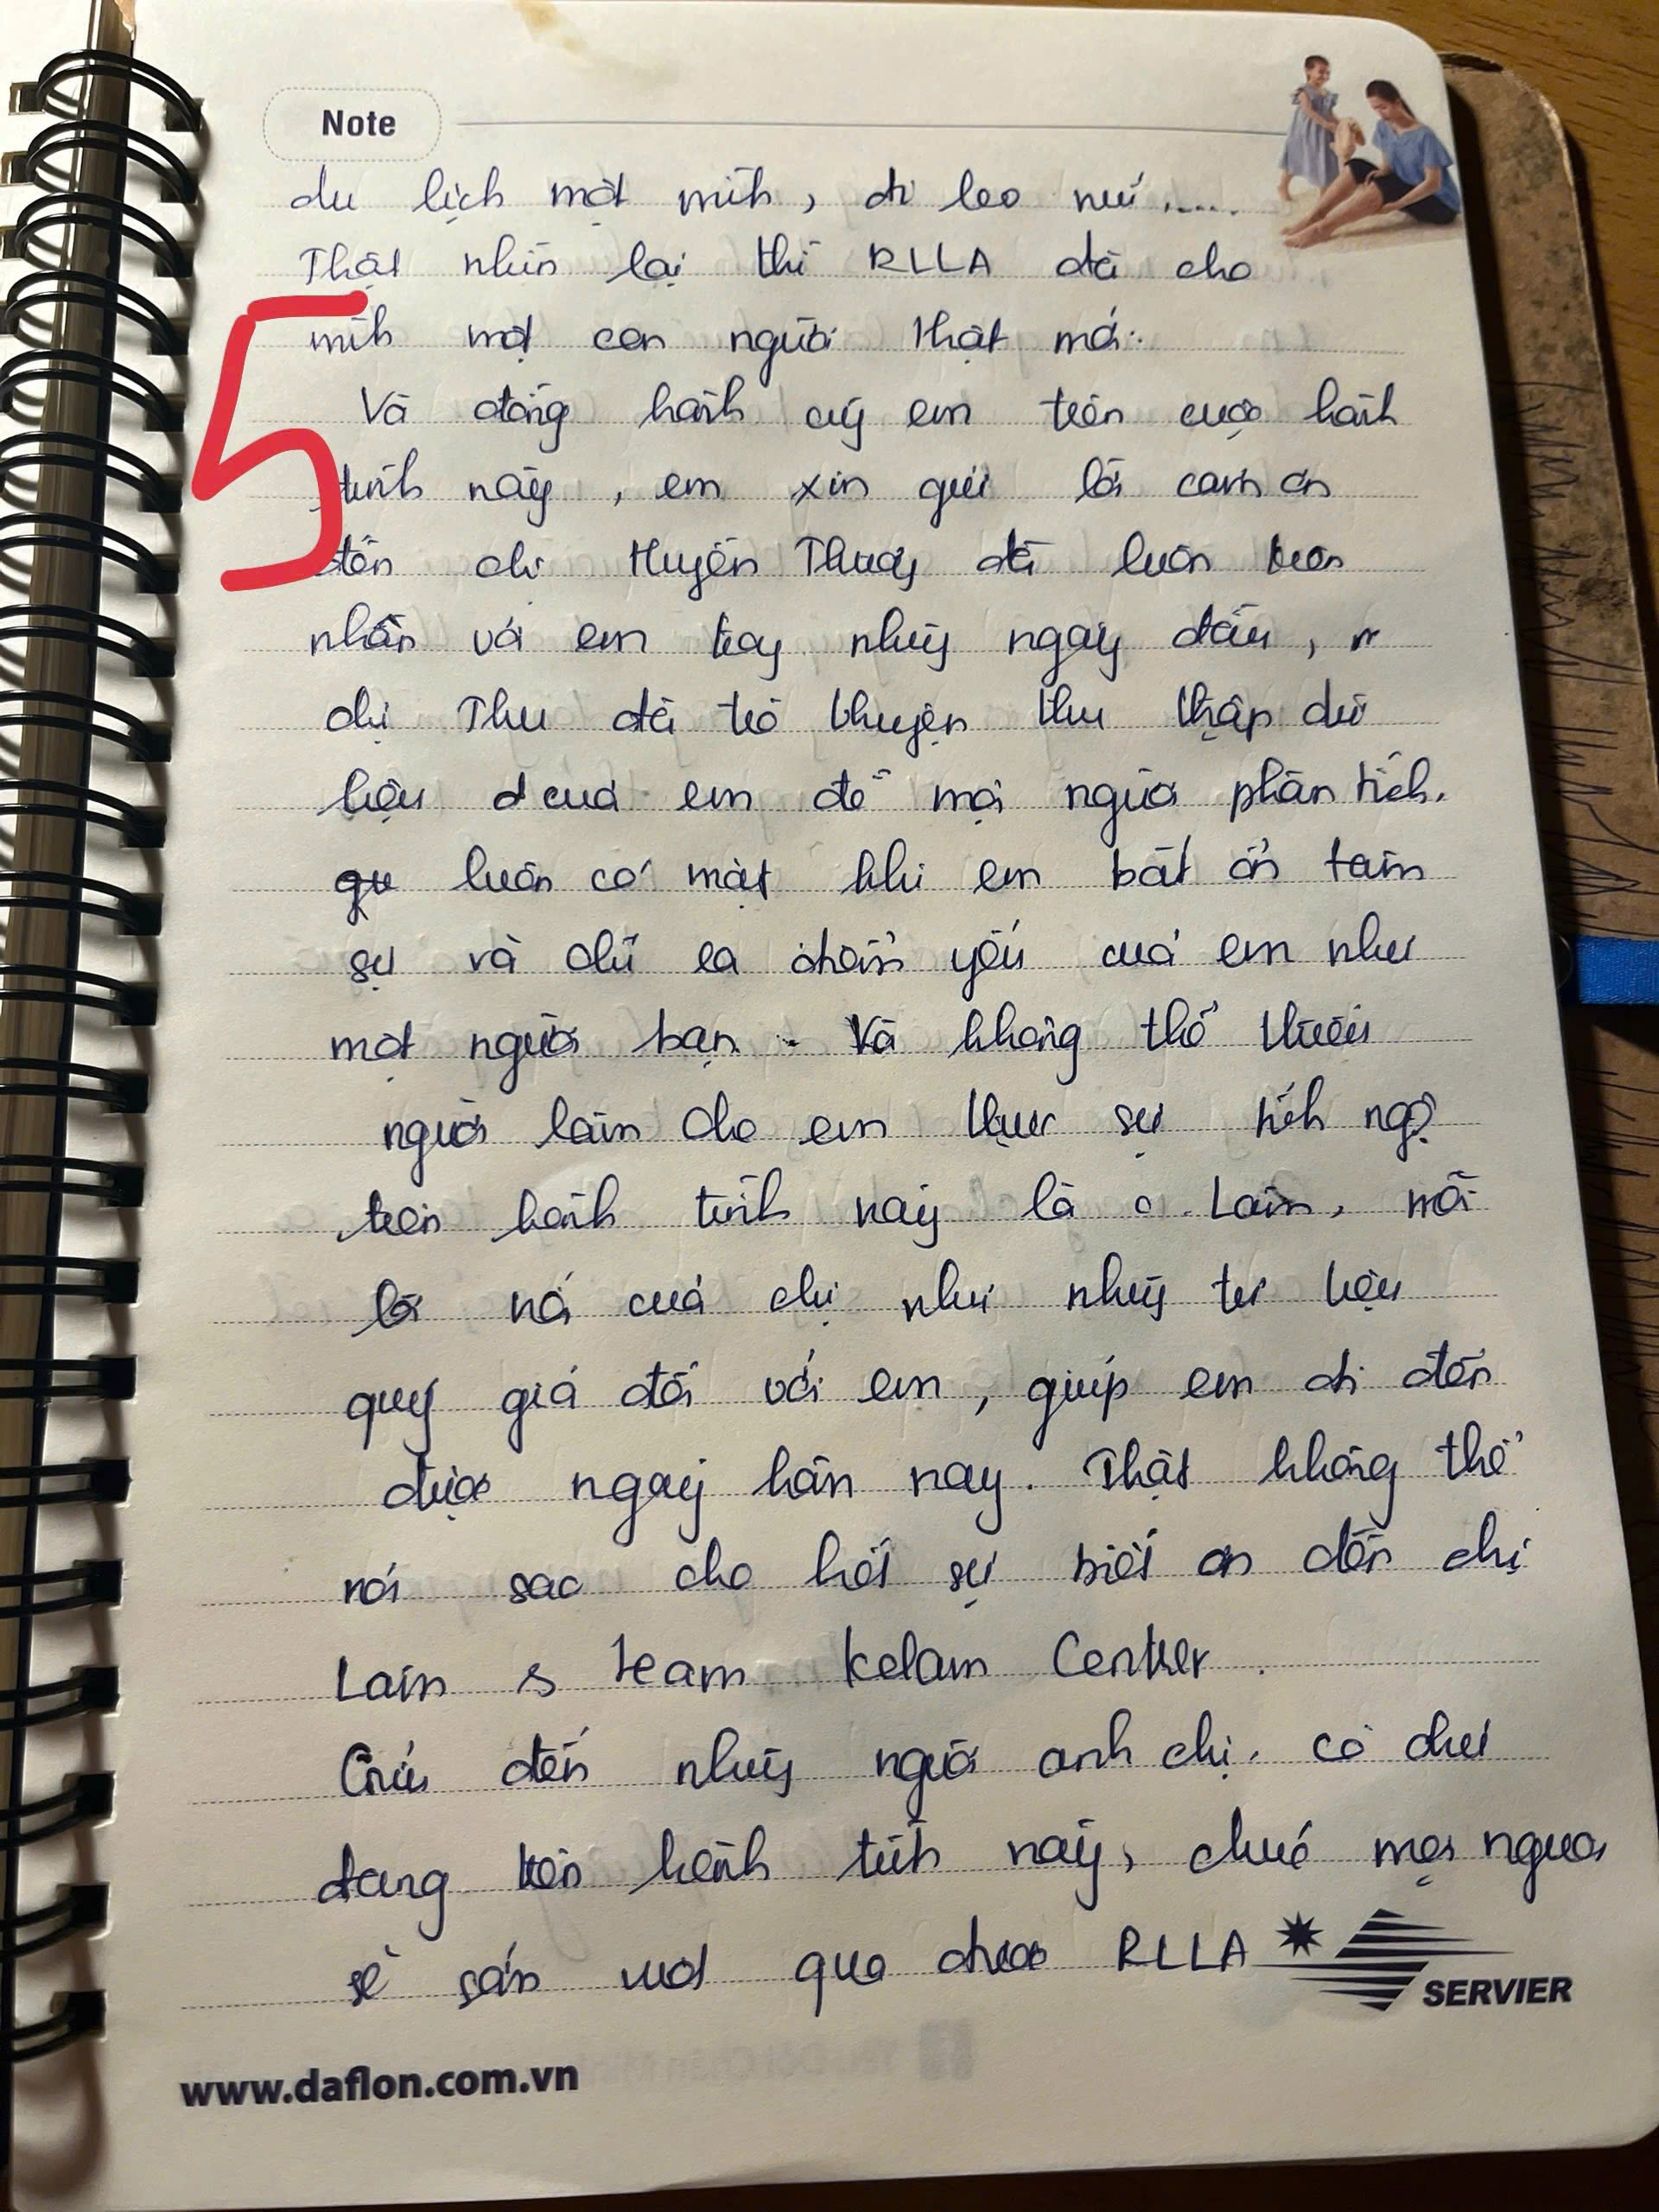 Note
du lịch một mình, đi leo núi.....
Thật nhìn lại thì RLLA đã cho
mình một con người thật mới.
5
Và đồng hành cùng em trên cuộc hành
trình này, em xin gửi lời cảm ơn
đến chị Huyền Thương đã luôn kiên
nhẫn với em trong những ngày đầu,
chị Thu đã trò chuyện thu thập dữ
liệu của em để mọi người phân tích.
luôn có mặt khi em bất ổn tâm
sự và chỉ ra điểm yếu của em như
một người bạn. Và không thể thiếu
người làm cho em thực sự tỉnh ngộ
trên hành trình này là c. Lam, mỗi
lời nói của chị như những tư liệu
quý giá đối với em, giúp em đi đến
được ngày hôm nay. Thật không thể
nói sao cho hết sự biết ơn đến chị
Lam & team Kelam Center.
Gửi đến những người anh chị, cô chú
đang trên hành trình này, chúc mọi người
sẽ sớm vượt qua được RLLA
SERVIER
www.daflon.com.vn